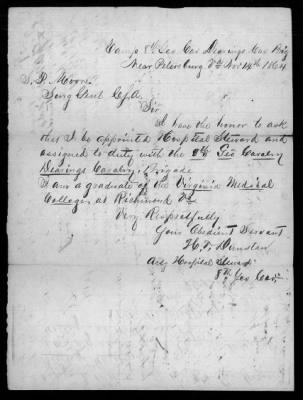 Camp 8th Geo Cav Dearings Cav Brig
Near Petersburg Va Nov 14th 1864
S. P. Moore
Surg Genl C.S.A.
Sir
I have the honor to ask
that I be appointed Hospital Steward and
assigned to duty with the 8th Geo Cavalry
Dearings Cavalry Brigade
I am a graduate of the Virginia Medical
College at Richmond Va
Very Respectfully
Your Obedient Servant
Actg Hospital Steward
8th Geo Cav